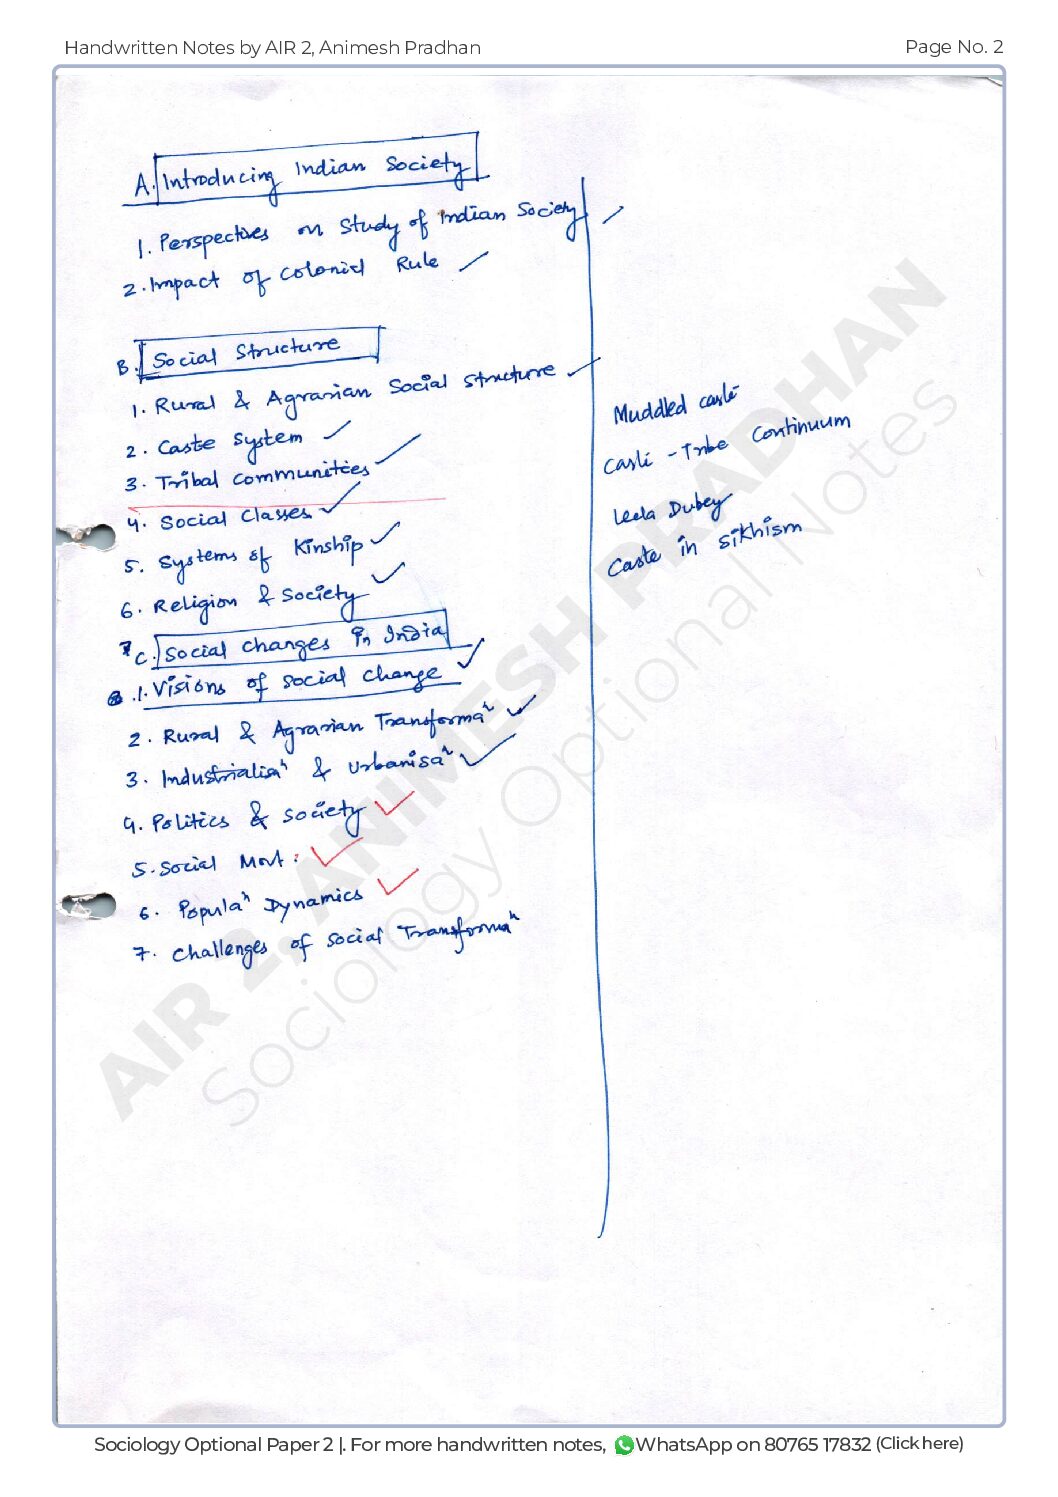 Handwritten Notes by AIR 2, Animesh Pradhan
Page No. 2
A. Introducing Indian Society
1. Perspectives on Study of Indian Society
2. Impact of Colonial Rule
B. Social Structure
1. Rural & Agrarian Social Structure
2. Caste System
3. Tribal Communities
4. Social Classes
5. Systems of Kinship
6. Religion & Society
7 C. Social Changes in India
1. Visions of Social Change
2. Rural & Agrarian Transformaⁿ
3. Industrialisaⁿ & Urbanisaⁿ
4. Politics & Society
5. Social Movt:
6. Populaⁿ Dynamics
7. Challenges of Social Transformaⁿ
Muddled caste
Caste - Tribe Continuum
Leela Dubey
Caste in Sikhism
AIR 2, ANIMESH PRADHAN
Sociology Optional Notes
Sociology Optional Paper 2 |. For more handwritten notes, WhatsApp on 80765 17832 (Click here)